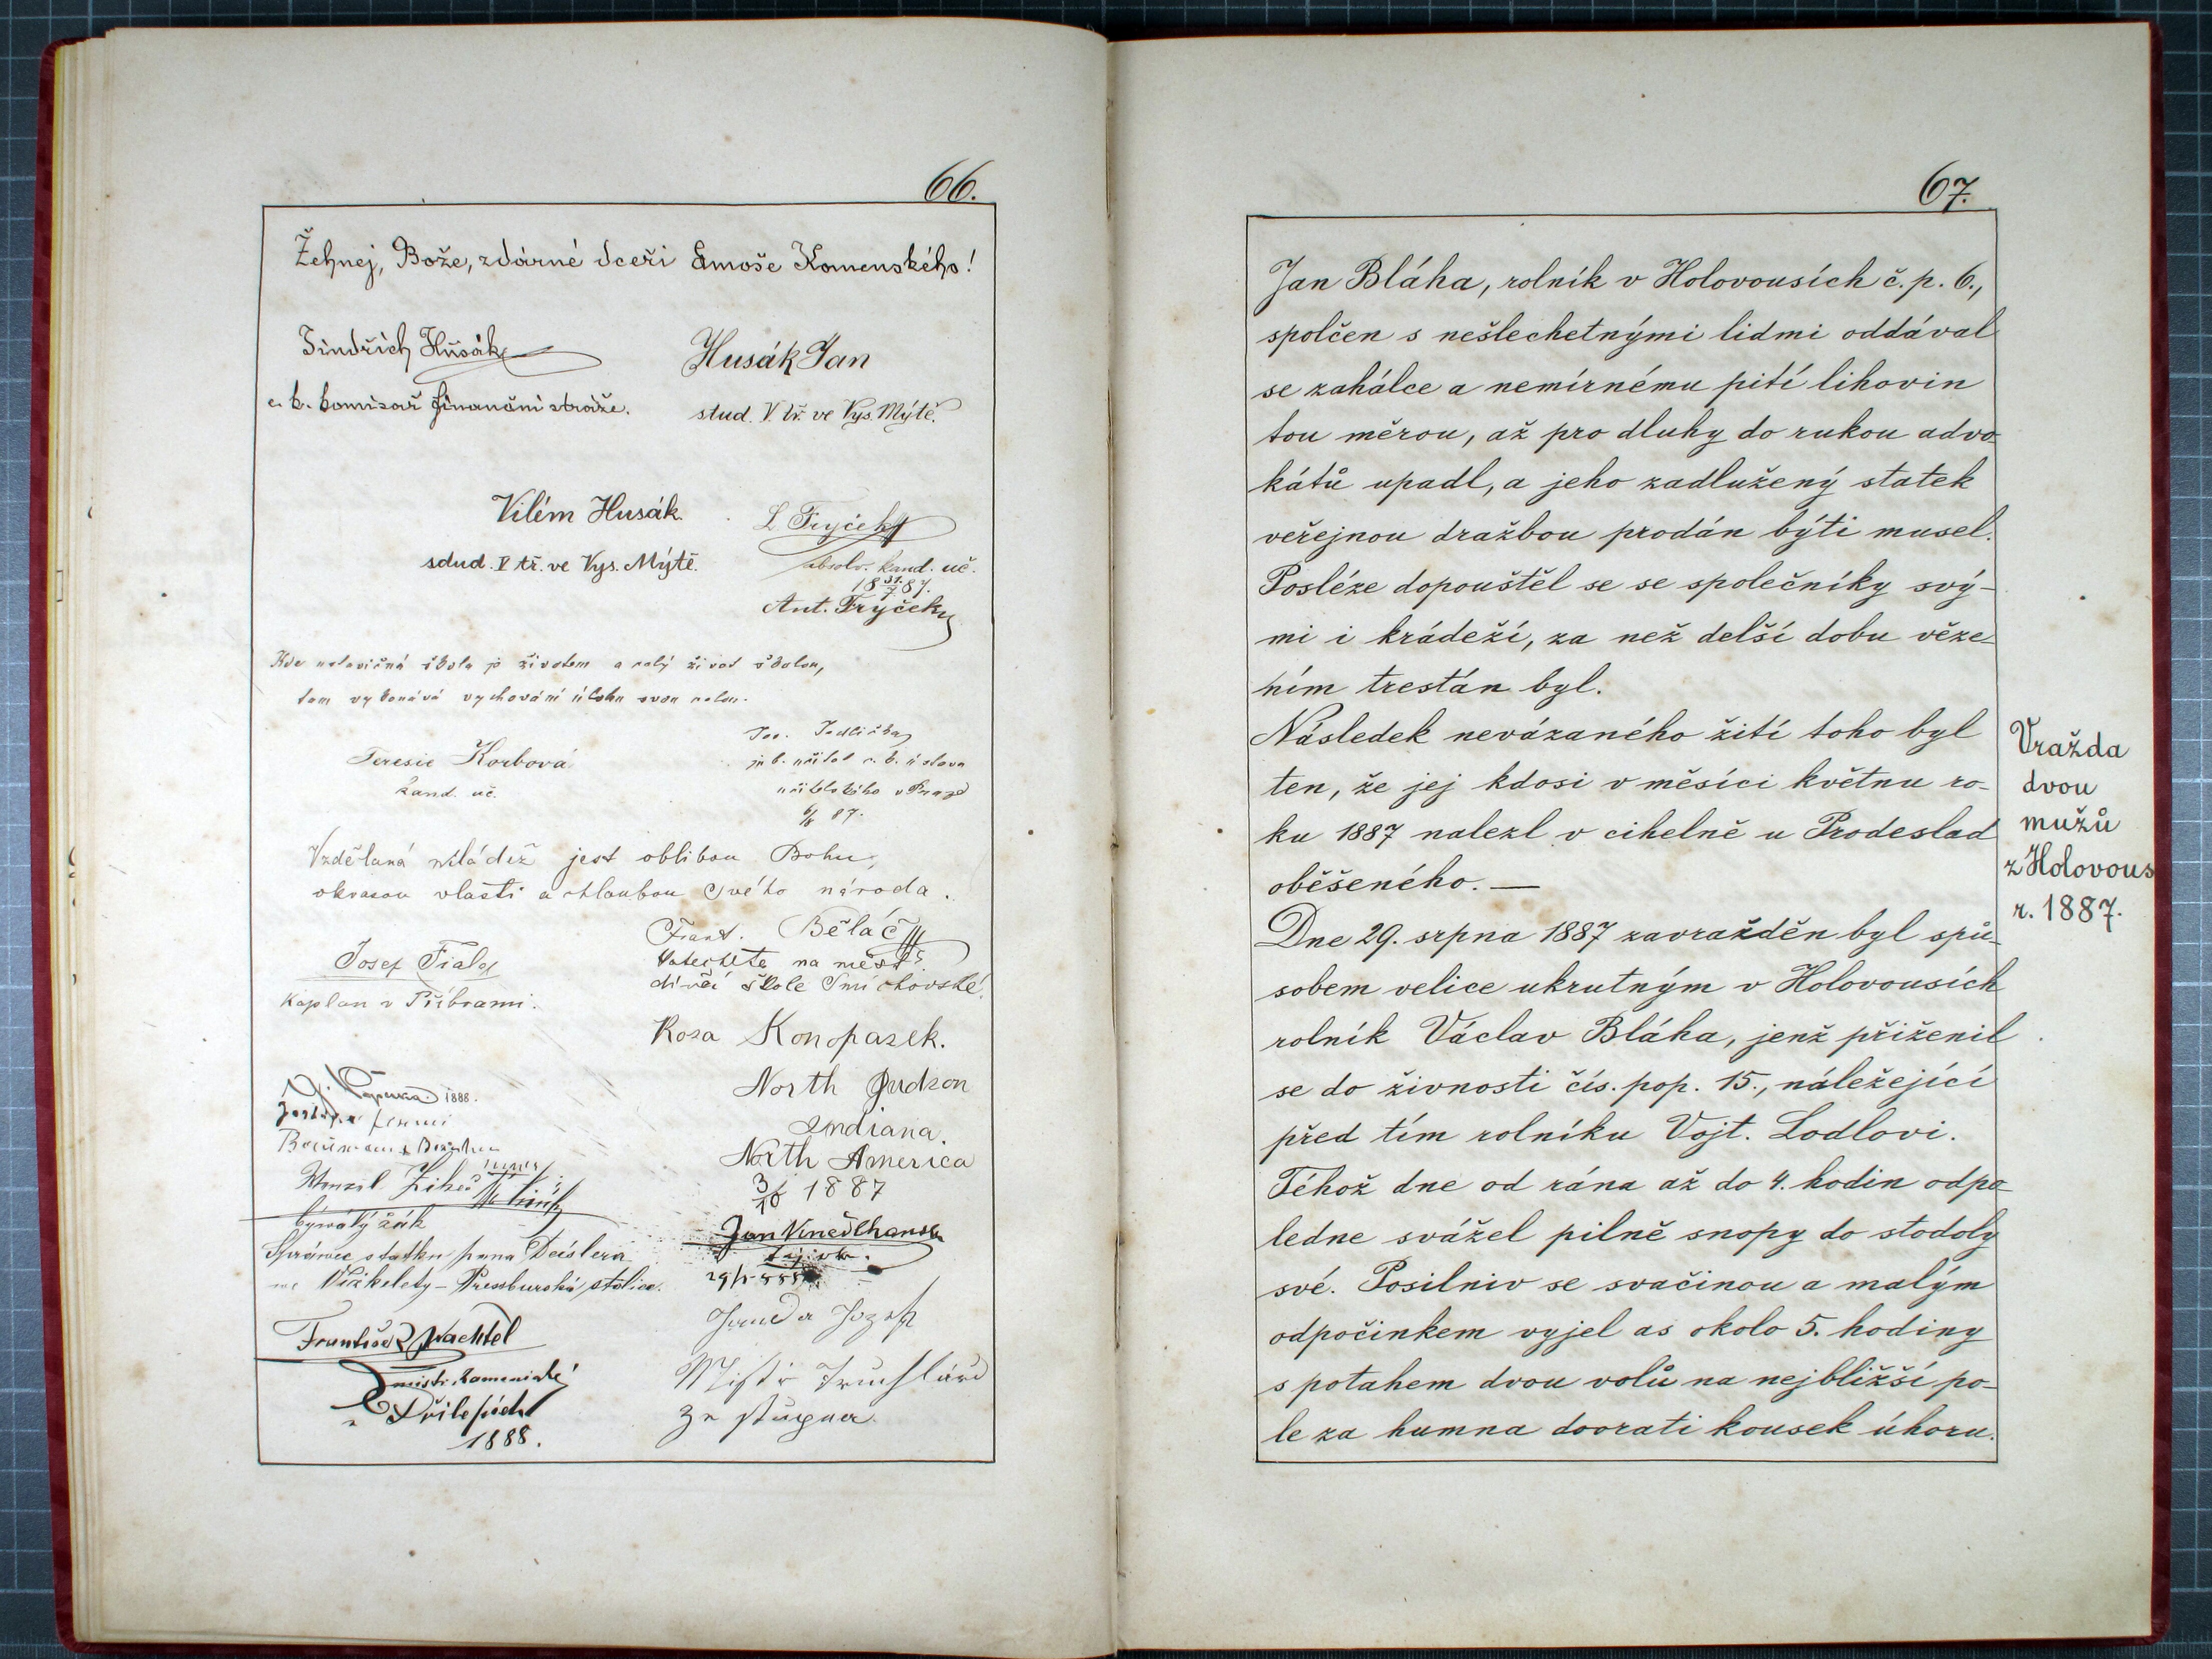 66.
Žehnej, Bože, zdárné dceři Amoše Komenského!
Jindřich Husák
c. k. komisař finanční stráže.
Husák Jan
stud. V. tř. ve Vys. Mýtě.
Vilém Husák.
sdud. V tř. ve Vys. Mýtě.
L. Fryček
absolv. kand. uč.
18 31/7 87.
Ant. Fryček
škola je životem a celý život školou,
tam vykonává vychování úlohu svou celou.
Teresie Korbová
kand. uč.
Jos. Jedlička
c. k. ústavu
učitelského v Praze
6/8 87.
Vzdělaná mládež jest oblibou Bohu,
okrasou vlasti a chloubou svého národa.
Josef Fiala
Kaplan v Příbrami.
Frant. Běláč
katecheta na měst.
dívčí škole Smíchovské.
Rosa Konopasek.
North Judson
Indiana.
North America
3/10 1887
1888.
bývalý žák
Správce statku pana Deislera
Pressburská stolice.
Jan
František Wachtel
mistr kamenický
v Přílepích
1888.
Mistr Truhlářů
67.
Jan Bláha, rolník v Holovousích č. p. 6.,
spolčen s nešlechetnými lidmi oddával
se zahálce a nemírnému pití lihovin
tou měrou, až pro dluhy do rukou advo-
kátů upadl, a jeho zadlužený statek
veřejnou dražbou prodán býti musel.
Posléze dopouštěl se se společníky svý-
mi i krádeží, za než delší dobu věze-
ním trestán byl.
Následek nevázaného žití toho byl
ten, že jej kdosi v měsíci květnu ro-
ku 1887 nalezl v cihelně u Prodeslad
oběšeného. —
Vražda
dvou
mužů
z Holovous
r. 1887.
Dne 29. srpna 1887 zavražděn byl spů-
sobem velice ukrutným v Holovousích
rolník Václav Bláha, jenž přiženil
se do živnosti čís. pop. 15., náležející
před tím rolníku Vojt. Lodlovi.
Téhož dne od rána až do 4. hodin odpo-
ledne svážel pilně snopy do stodoly
své. Posilniv se svačinou a malým
odpočinkem vyjel as okolo 5. hodiny
s potahem dvou volů na nejbližší po-
le za humna dvorati kousek úhoru.